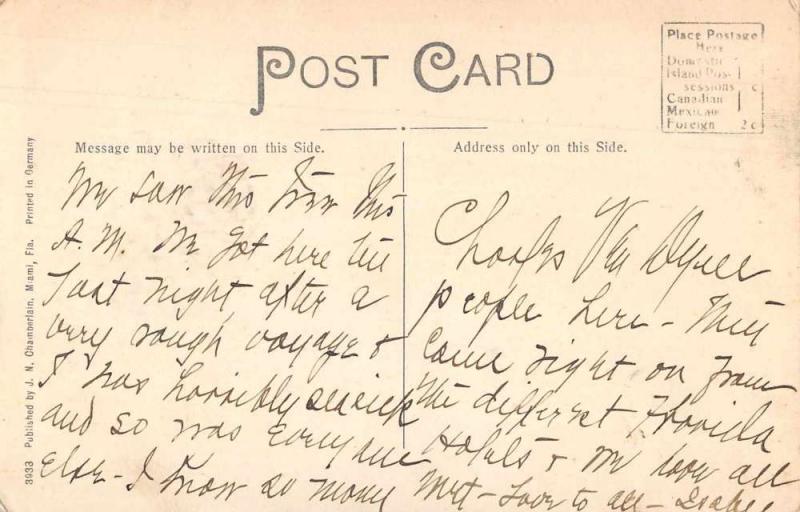 POST CARD
Place Postage
Here
Domestic
Island Pos-
sessions c
Canadian
Mexican
Foreign 2c
Message may be written on this Side.
Address only on this Side.
3933 Published by J. N. Chamberlain, Miami, Fla. Printed in Germany
We saw this tree this
A.M. We got here
last night, after a
very rough voyage &
I was horribly seasick
and so was everyone
else - I know so many
people here - They
came right on from
the different Florida
Hotels & we all
met - Love to all -